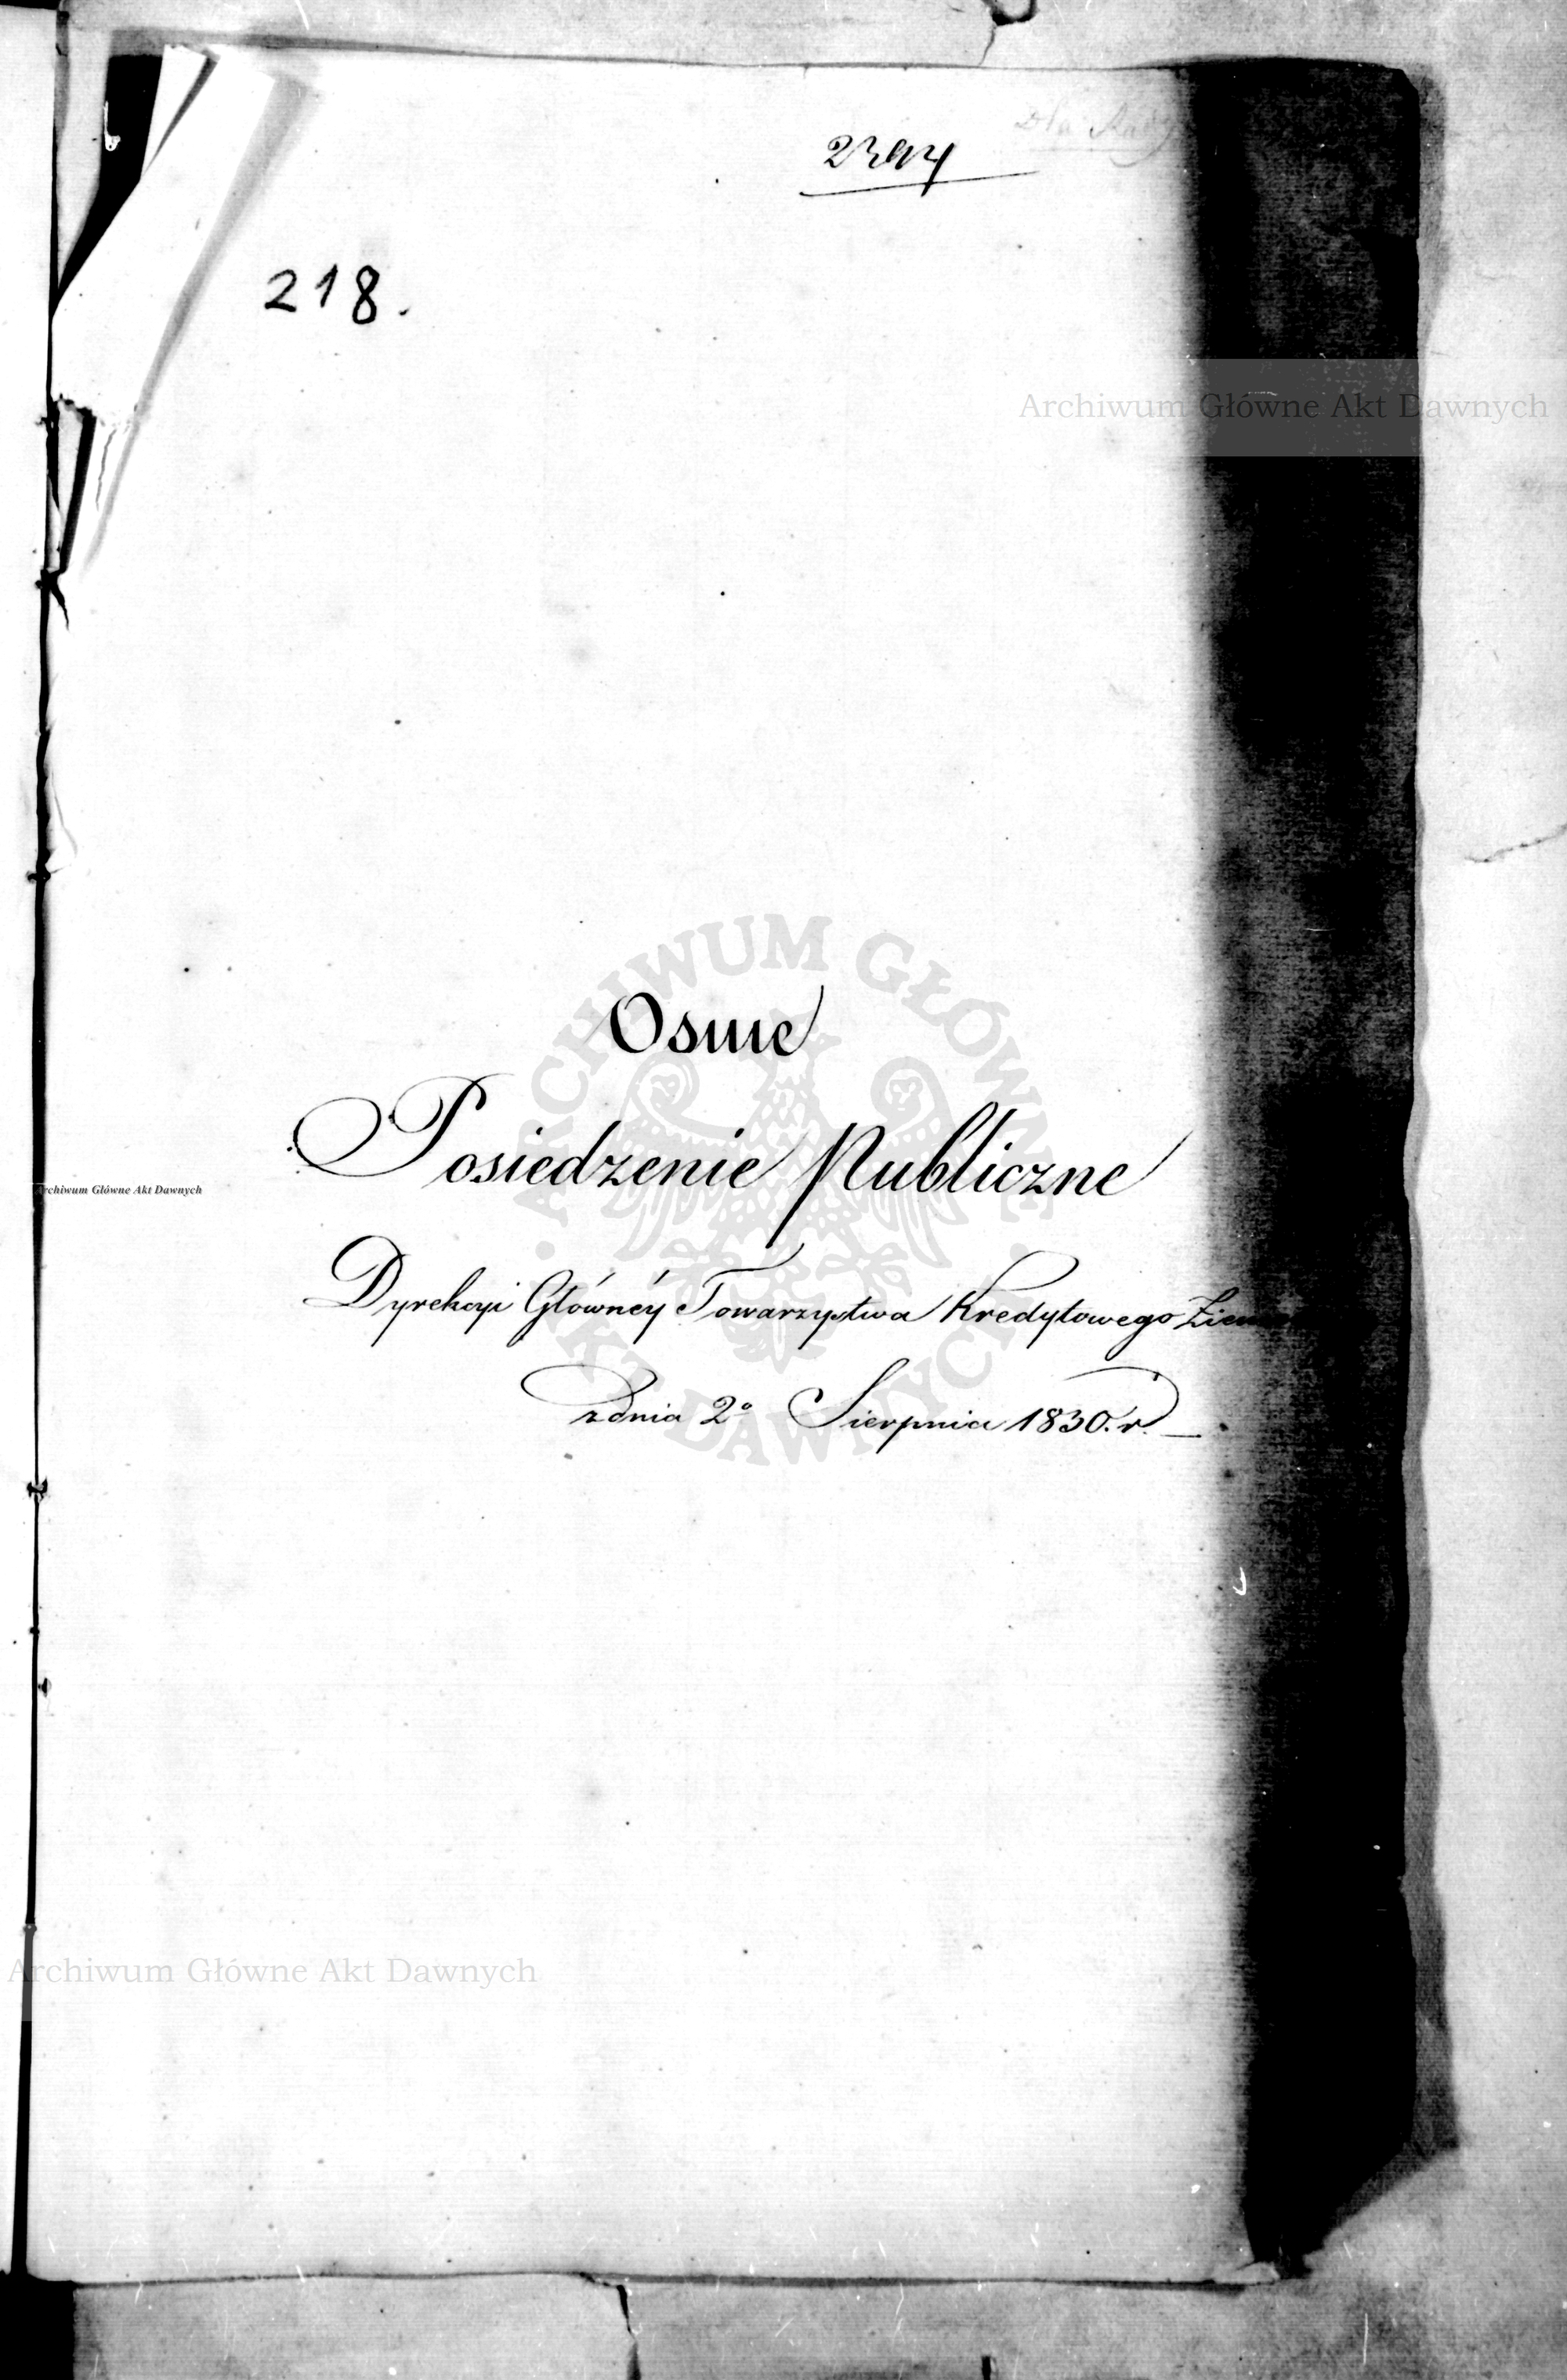 Dla Rady
2394
218.
Archiwum Główne Akt Dawnych
Osme
Posiedzenie Publiczne
Archiwum Główne Akt Dawnych
Dyrekcyi Głównéy Towarzystwa Kredytowego Ziem
z dnia 2º Sierpnia 1830. r.
ARCHIWUM GŁÓWNE · AKT DAWNYCH ·
Archiwum Główne Akt Dawnych